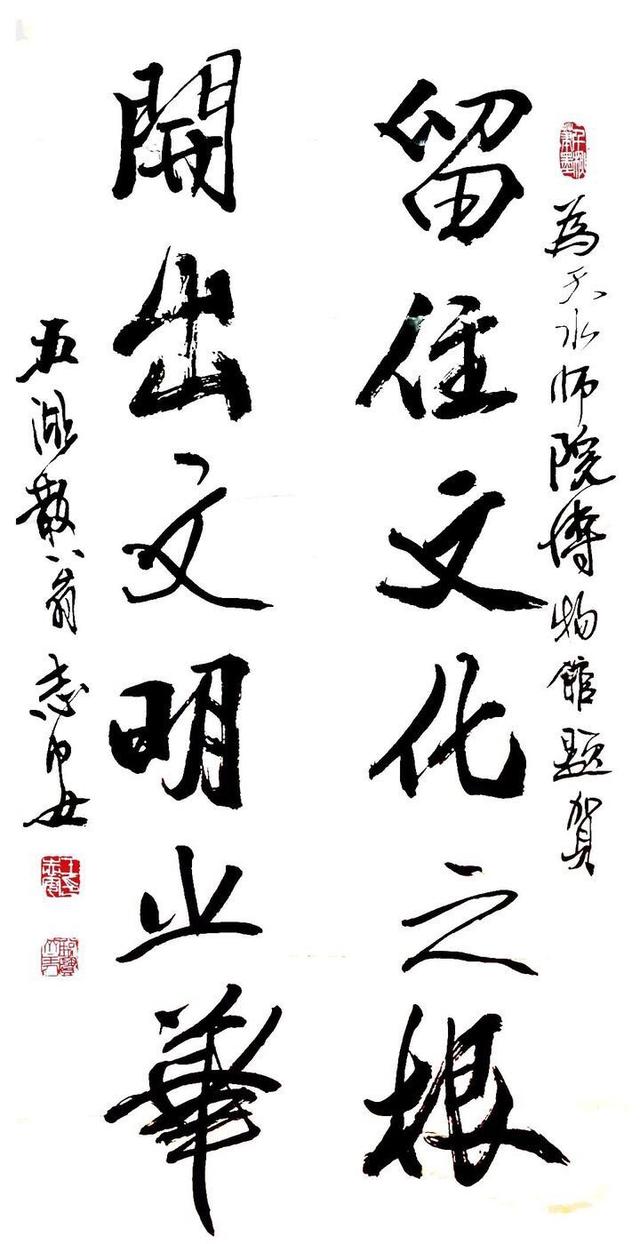 為天水师院博物館题賀
留住文化之根
開出文明之華
五湖散人翁志安